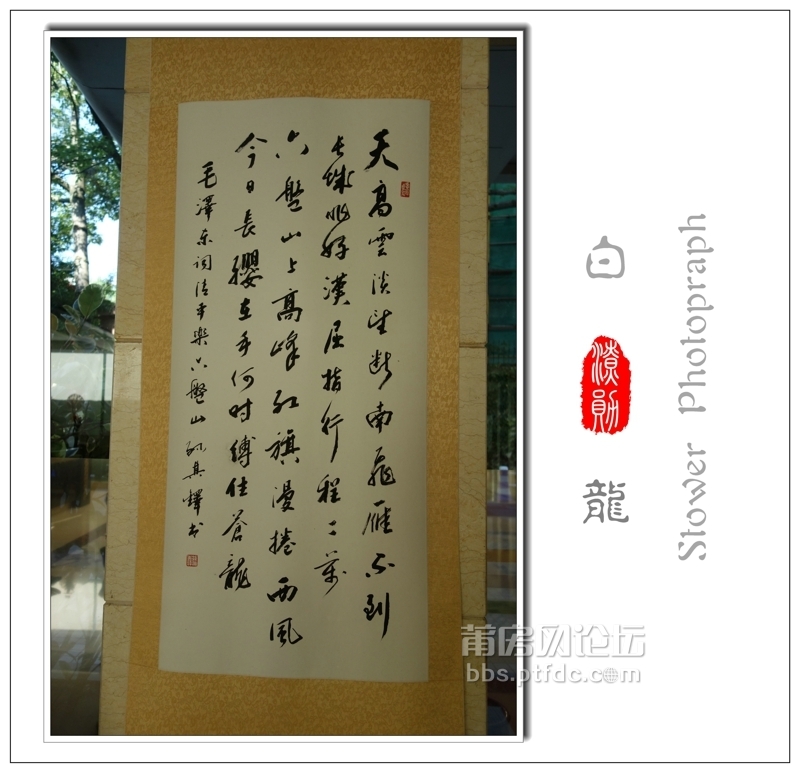 天高雲淡望断南飛雁不到
长城非好漢屈指行程二萬
六盤山上高峰红旗漫捲西風
今日長纓在手何时縛住蒼龍
毛澤东词清平樂六盤山 其 书
白 龍
Stower Photopraph
莆房网论坛
bbs.ptfdc.com